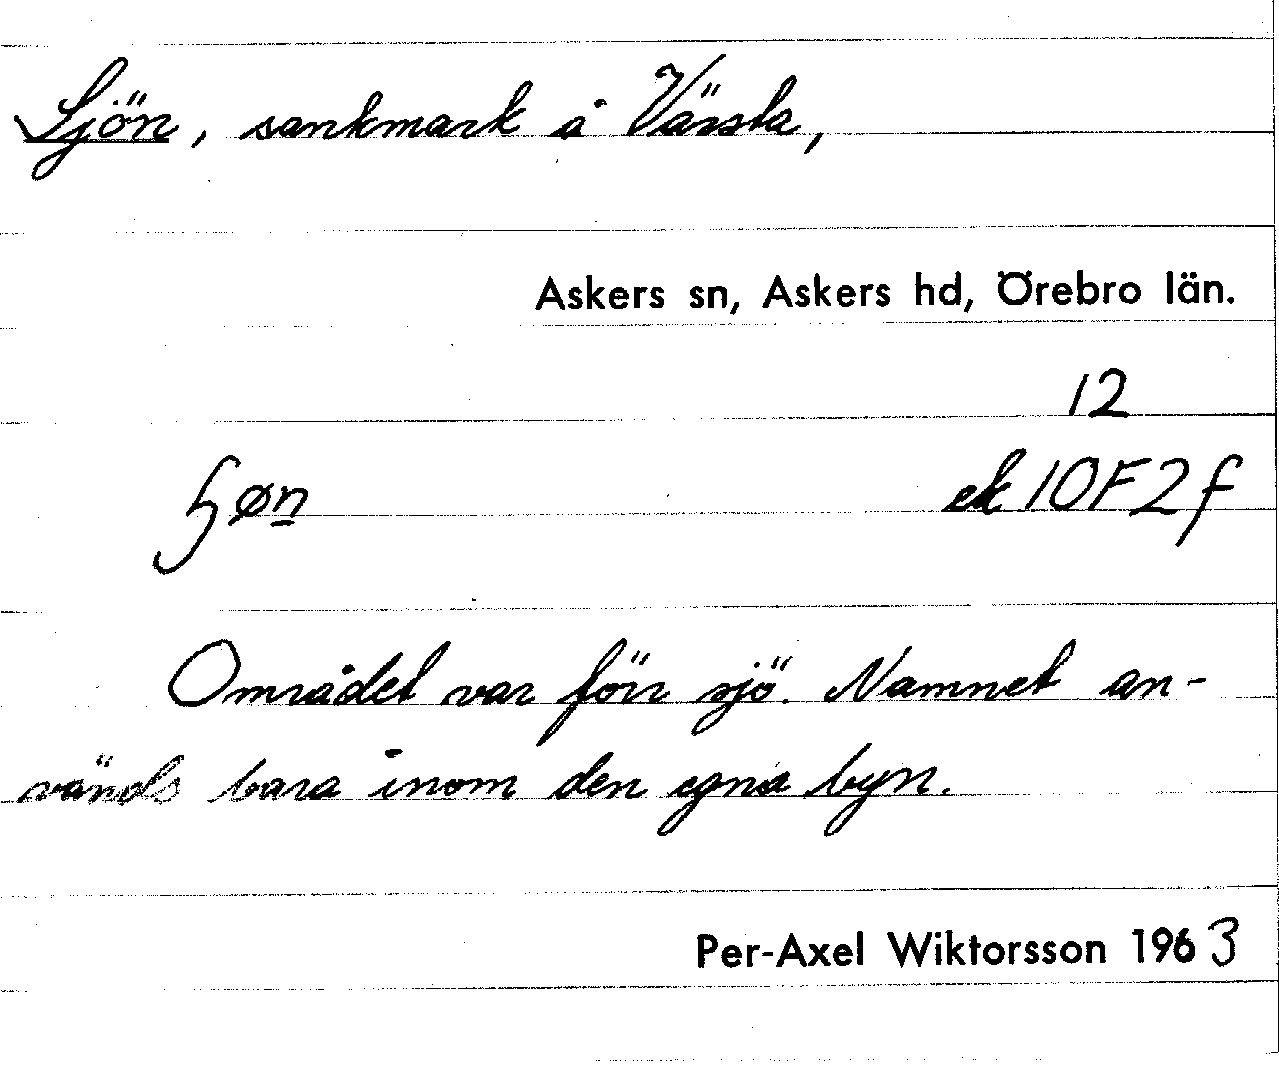 Sjön, sankmark å Värsta,
Askers sn, Askers hd, Örebro län.
12
ɧøn ek 10F2f
Området var förr sjö. Namnet an-
vänds bara inom den egna byn.
Per-Axel Wiktorsson 1963